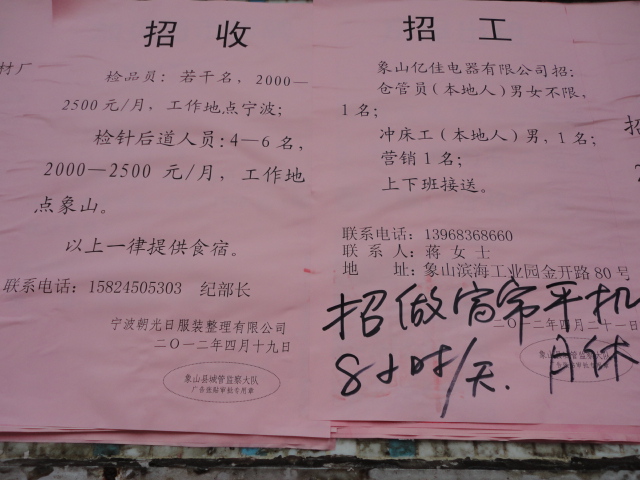 材厂
招收
检品员：若干名，2000—
2500元/月，工作地点宁波；
检针后道人员：4—6名，
2000—2500元/月，工作地
点象山。
以上一律提供食宿。
联系电话：15824505303 纪部长
宁波朝光日服装整理有限公司
二〇一二年四月十九日
象山县城管监察大队
广告张贴审批专用章
招工
象山亿佳电器有限公司招：
仓管员（本地人）男女不限，
1名；
冲床工（本地人）男，1名；
营销1名；
上下班接送。
联系电话：13968368660
联系人：蒋女士
地址：象山滨海工业园金开路80号
二〇一二年四月二十一日
招做窗帘平机
8小时/天．月休
象山县城管监察大队
招
2